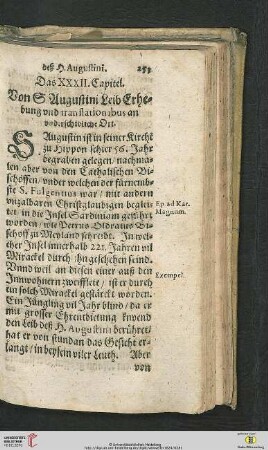 deß H. Augustini. 253
Das XXXII. Capitel.
Von S Augustini Leib Erhe-
bung vnd translationibus an
vnderschidliche Ort.
S Augustin ist in seiner Kirche
zu Hippon schier 56. Jahr
begraben gelegen / nachma-
len aber von den Catholischen Bi-
schoffen / vnder welchen der fürnemb-
ste S. Fulgentius war / mit andern
vnzalbaren Christglaubigen beglei-
tet / in die Insel Sardiniam geführt
worden / wie Petrus Oldratus Bi-
schoff zu Meyland schreibt. In wel-
cher Insel innerhalb 221. Jahren vil
Mirackel durch ihn geschehen seind.
Vnnd weil an disen einer auß den
Innwohnern zweifflete / ist er durch
ein solch Mirackel gestärckt worden.
Ein Jüngling vil Jahr blind / da er
mit grosser Ehrenbietung knyend
den Leib deß H. Augustini berühret /
hat er von stundan das Gesicht er-
langt / in beysein viler Leuth. Aber
von
Ep. ad Kar.
Magnum.
Exempel.